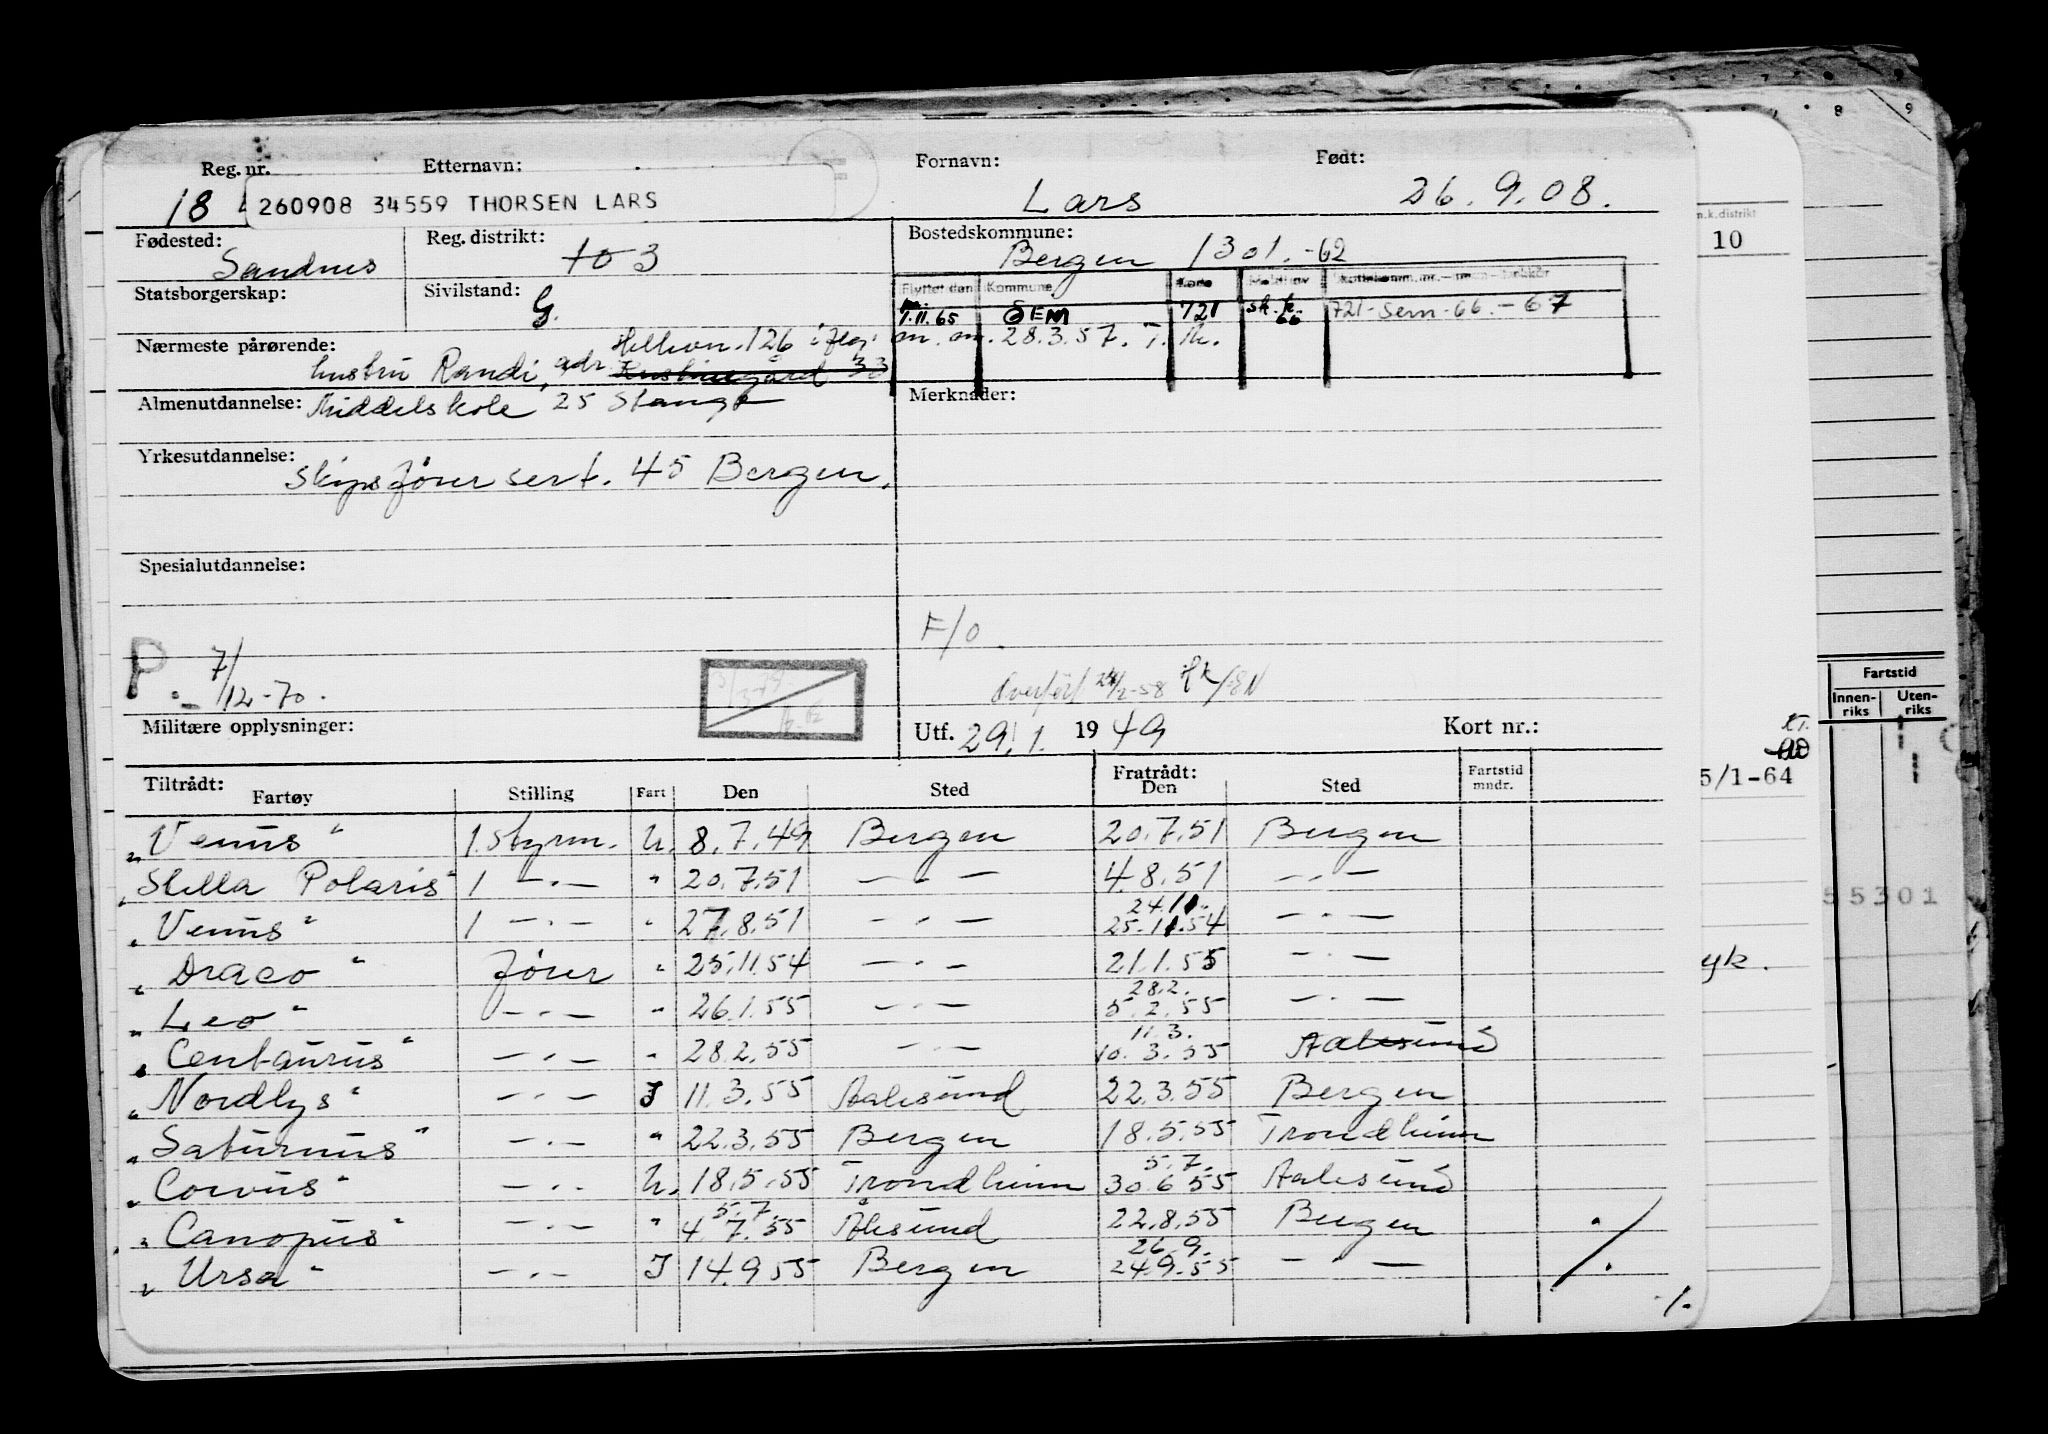 Reg. nr. Etternavn: Fornavn: Født:
18 260908 34559 THORSEN LARS Lars 26.9.08.
Fødested: Sandnes Reg. distrikt: 103 Bostedskommune: Bergen 1301.-62
Statsborgerskap: Sivilstand: G.
Flyttet den Kommune Kode Meldt av
1.11.65 SEM 721 sk.k. 66 721-Sem-66.-67
m.m. 28.3.57. T. Th.
Nærmeste pårørende: hustru Randi, adr. 126 33
Almenutdannelse: Middelskole 25 Stange Merknader:
Yrkesutdannelse: Skipsfører sert. 45 Bergen.
Spesialutdannelse:
F/O.
P. 7/12-70.
Overført 24/2-58
Militære opplysninger: Utf. 29.1. 1949 Kort nr.:
Tiltrådt: Fratrådt:
Fartøy Stilling Fart Den Sted Den Sted Fartstid mndr.
„Venus“ 1. Styrm. U. 8.7.49 Bergen 20.7.51 Bergen
„Stella Polaris“ 1 —.— " 20.7.51 —.— 4.8.51 —.—
24.11.
„Venus“ 1 —.— " 27.8.51 —.— 25.11.54 —.—
„Draco“ fører " 25.11.54 —.— 21.1.55 —.—
28.2.
„Leo“ —.— " 26.1.55 —.— 5.2.55 —.—
11.3.
„Centaurus“ —.— " 28.2.55 —.— 10.3.55 Aalesund
„Nordlys“ —.— I 11.3.55 Aalesund 22.3.55 Bergen
„Saturnus“ —.— " 22.3.55 Bergen 18.5.55 Trondheim
5.7.
„Corvus“ —.— U. 18.5.55 Trondheim 30.6.55 Aalesund
5.7.
„Canopus“ —.— " 4.7.55 Ålesund 22.8.55 Bergen
26.9.
„Ursa“ —.— I 14.9.55 Bergen 24.9.55 —.—
./.
-/-
8 9
m.k.distrikt
10
Fartstid
Innen-riks Uten-riks
5/1-64
55301
yk.